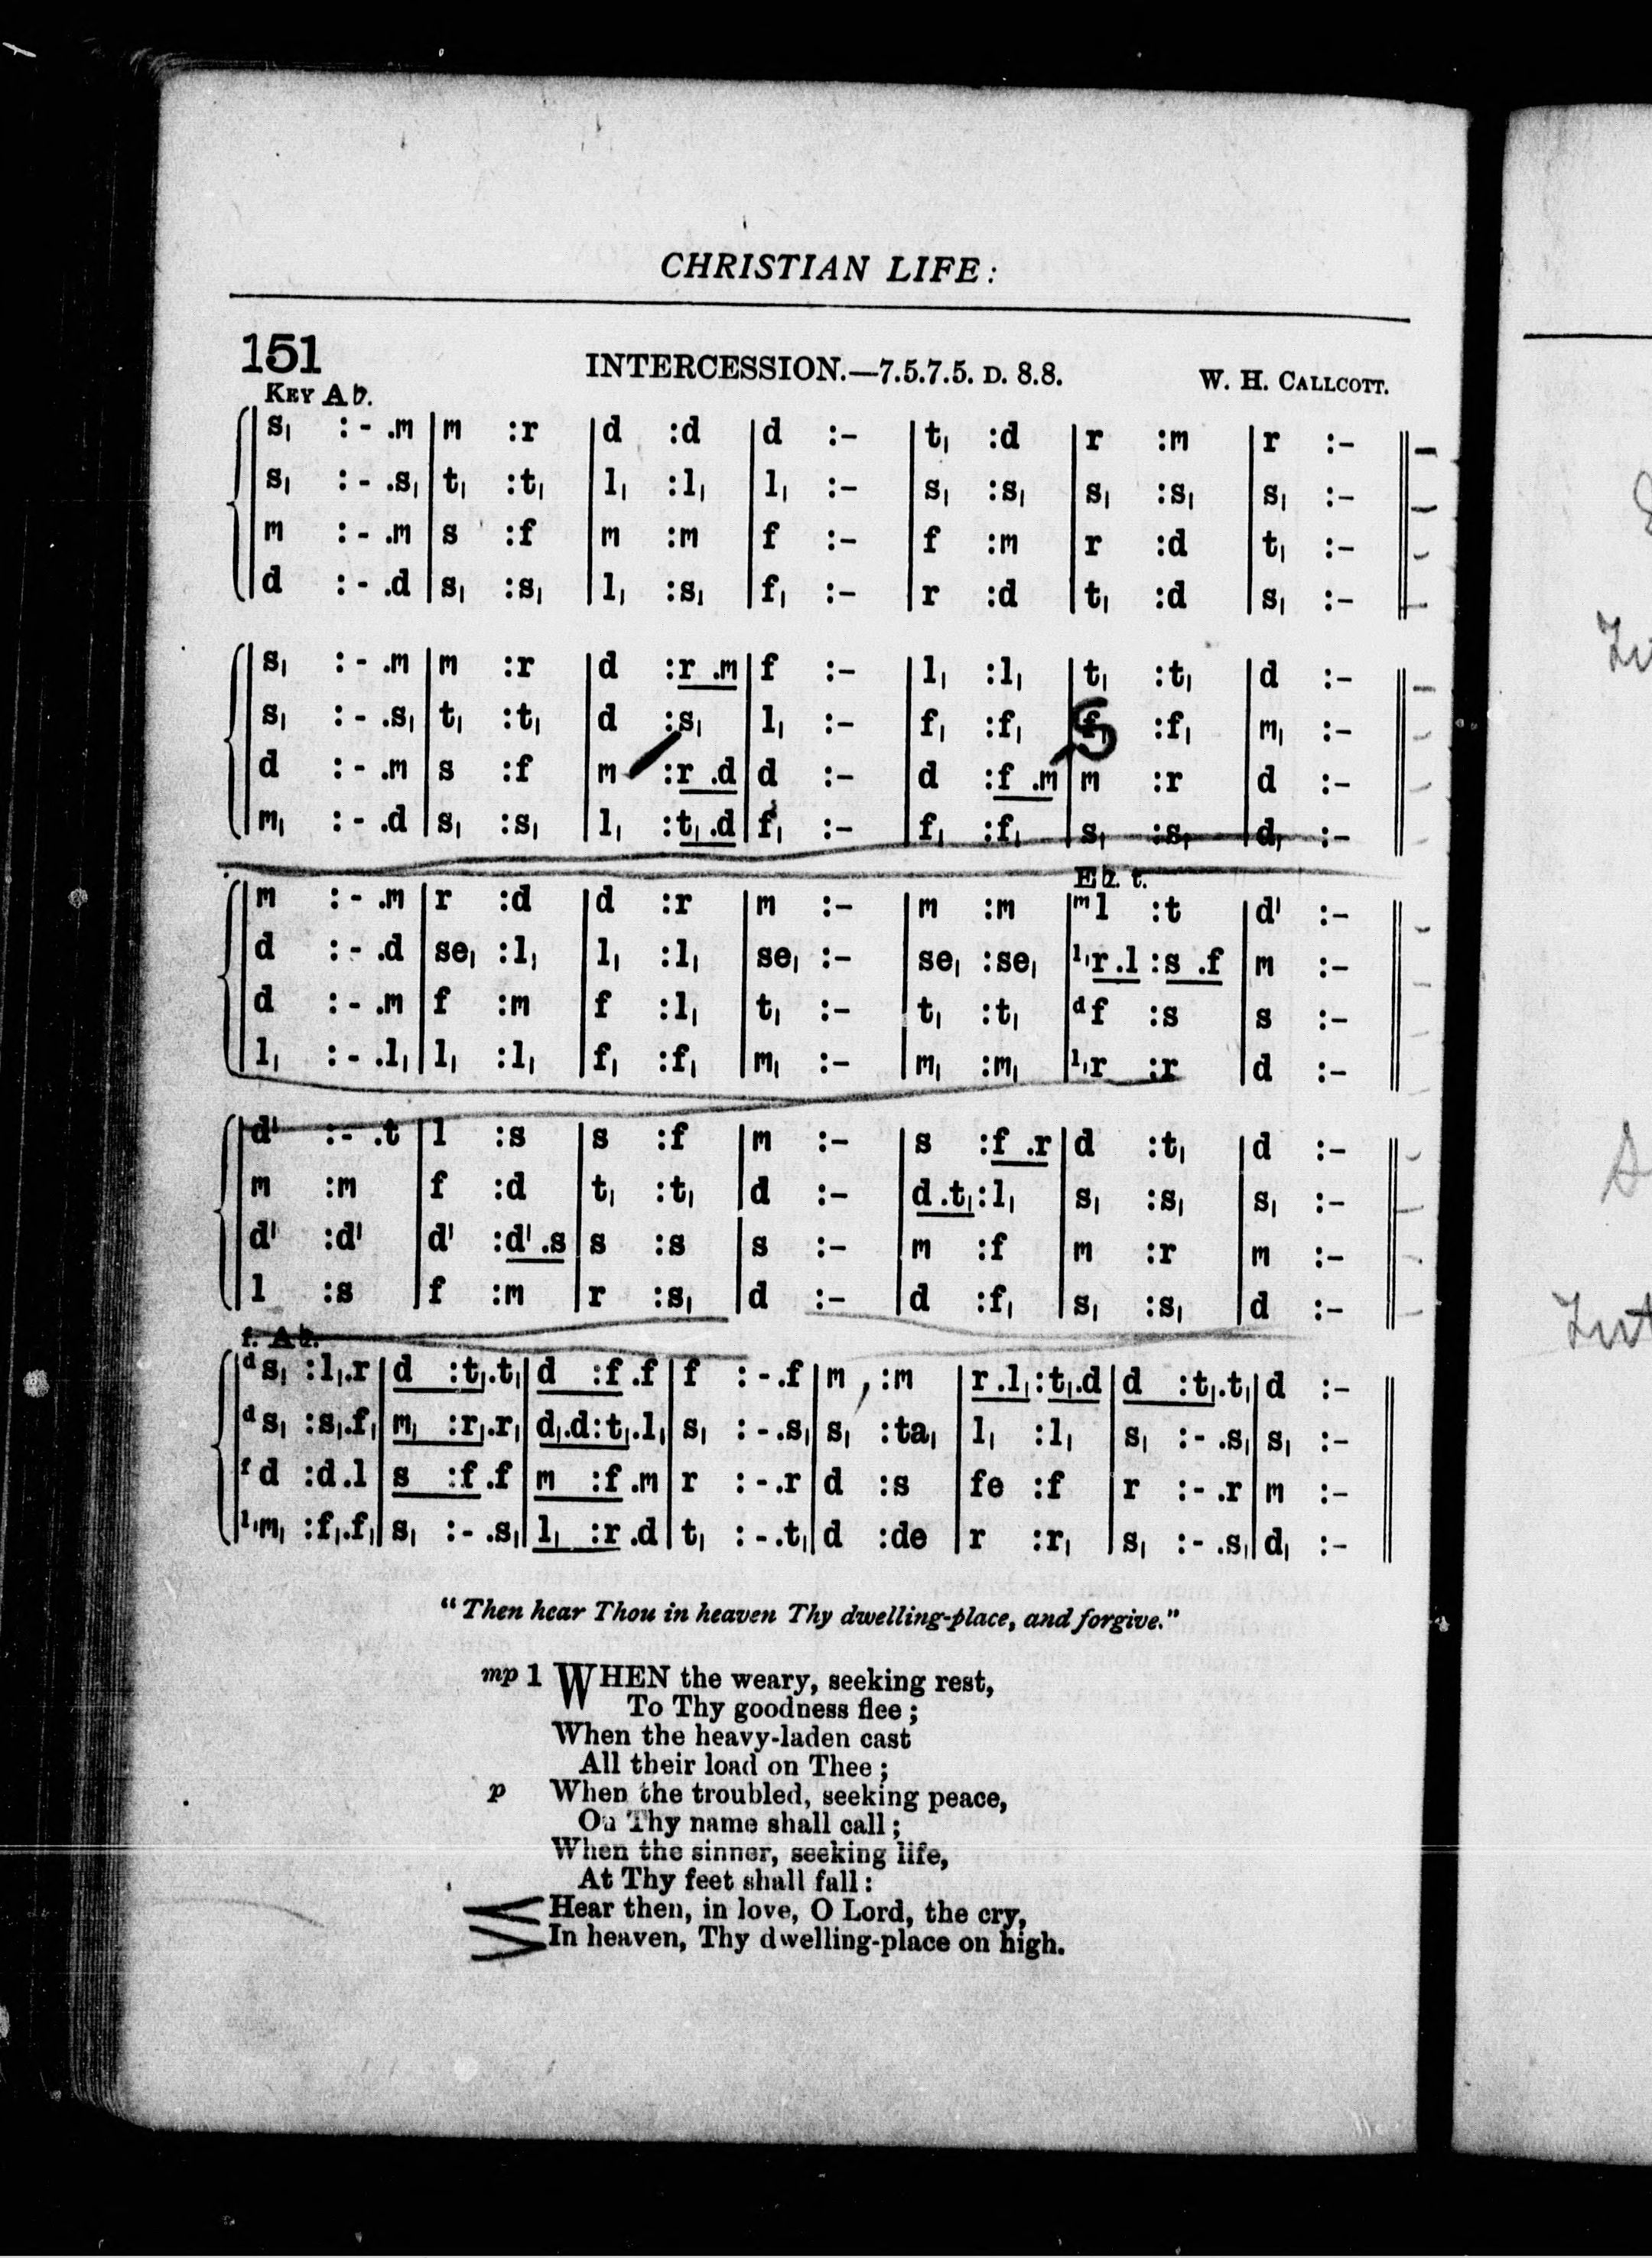 CHRISTIAN LIFE:
151
INTERCESSION.—7.5.7.5. D. 8.8.
W. H. CALLCOTT.
KEY A♭.
s₁ :- .m | m :r | d :d | d :- | t₁ :d | r :m | r :-
s₁ :- .s₁ | t₁ :t₁ | l₁ :l₁ | l₁ :- | s₁ :s₁ | s₁ :s₁ | s₁ :-
m :- .m | s :f | m :m | f :- | f :m | r :d | t₁ :-
d :- .d | s₁ :s₁ | l₁ :s₁ | f₁ :- | r :d | t₁ :d | s₁ :-
s₁ :- .m | m :r | d :r .m | f :- | l₁ :l₁ | t₁ :t₁ | d :-
s₁ :- .s₁ | t₁ :t₁ | d :s₁ | l₁ :- | f₁ :f₁ | S :f₁ | m₁ :-
d :- .m | s :f | m :r .d | d :- | d :f .m | m :r | d :-
m₁ :- .d | s₁ :s₁ | l₁ :t₁ .d | f₁ :- | f₁ :f₁ | s₁ :s₁ | d₁ :-
E♭. t.
m :- .m | r :d | d :r | m :- | m :m | ᵐl :t | d' :-
d :- .d | se₁ :l₁ | l₁ :l₁ | se₁ :- | se₁ :se₁ | ˡ¹r .l :s .f | m :-
d :- .m | f :m | f :l₁ | t₁ :- | t₁ :t₁ | ᵈf :s | s :-
l₁ :- .l₁ | l₁ :l₁ | f₁ :f₁ | m₁ :- | m₁ :m₁ | ˡ¹r :r | d :-
d' :- .t | l :s | s :f | m :- | s :f .r | d :t₁ | d :-
m :m | f :d | t₁ :t₁ | d :- | d .t₁ :l₁ | s₁ :s₁ | s₁ :-
d' :d' | d' :d' .s | s :s | s :- | m :f | m :r | m :-
l :s | f :m | r :s₁ | d :- | d :f₁ | s₁ :s₁ | d :-
f. A♭.
ᵈs₁ :l₁.r | d :t₁.t₁ | d :f .f | f :- .f | m :m | r .l₁ :t₁.d | d :t₁.t₁ | d :-
ᵈs₁ :s₁.f₁ | m₁ :r₁.r₁ | d₁.d :t₁.l₁ | s₁ :- .s₁ | s₁ :ta₁ | l₁ :l₁ | s₁ :- .s₁ | s₁ :-
ᶠd :d .l | s :f .f | m :f .m | r :- .r | d :s | fe :f | r :- .r | m :-
ˡ¹m₁ :f₁.f₁ | s₁ :- .s₁ | l₁ :r .d | t₁ :- .t₁ | d :de | r :r₁ | s₁ :- .s₁ | d₁ :-
"Then hear Thou in heaven Thy dwelling-place, and forgive."
mp 1 WHEN the weary, seeking rest,
To Thy goodness flee;
When the heavy-laden cast
All their load on Thee;
p When the troubled, seeking peace,
On Thy name shall call;
When the sinner, seeking life,
At Thy feet shall fall:
Hear then, in love, O Lord, the cry,
In heaven, Thy dwelling-place on high.